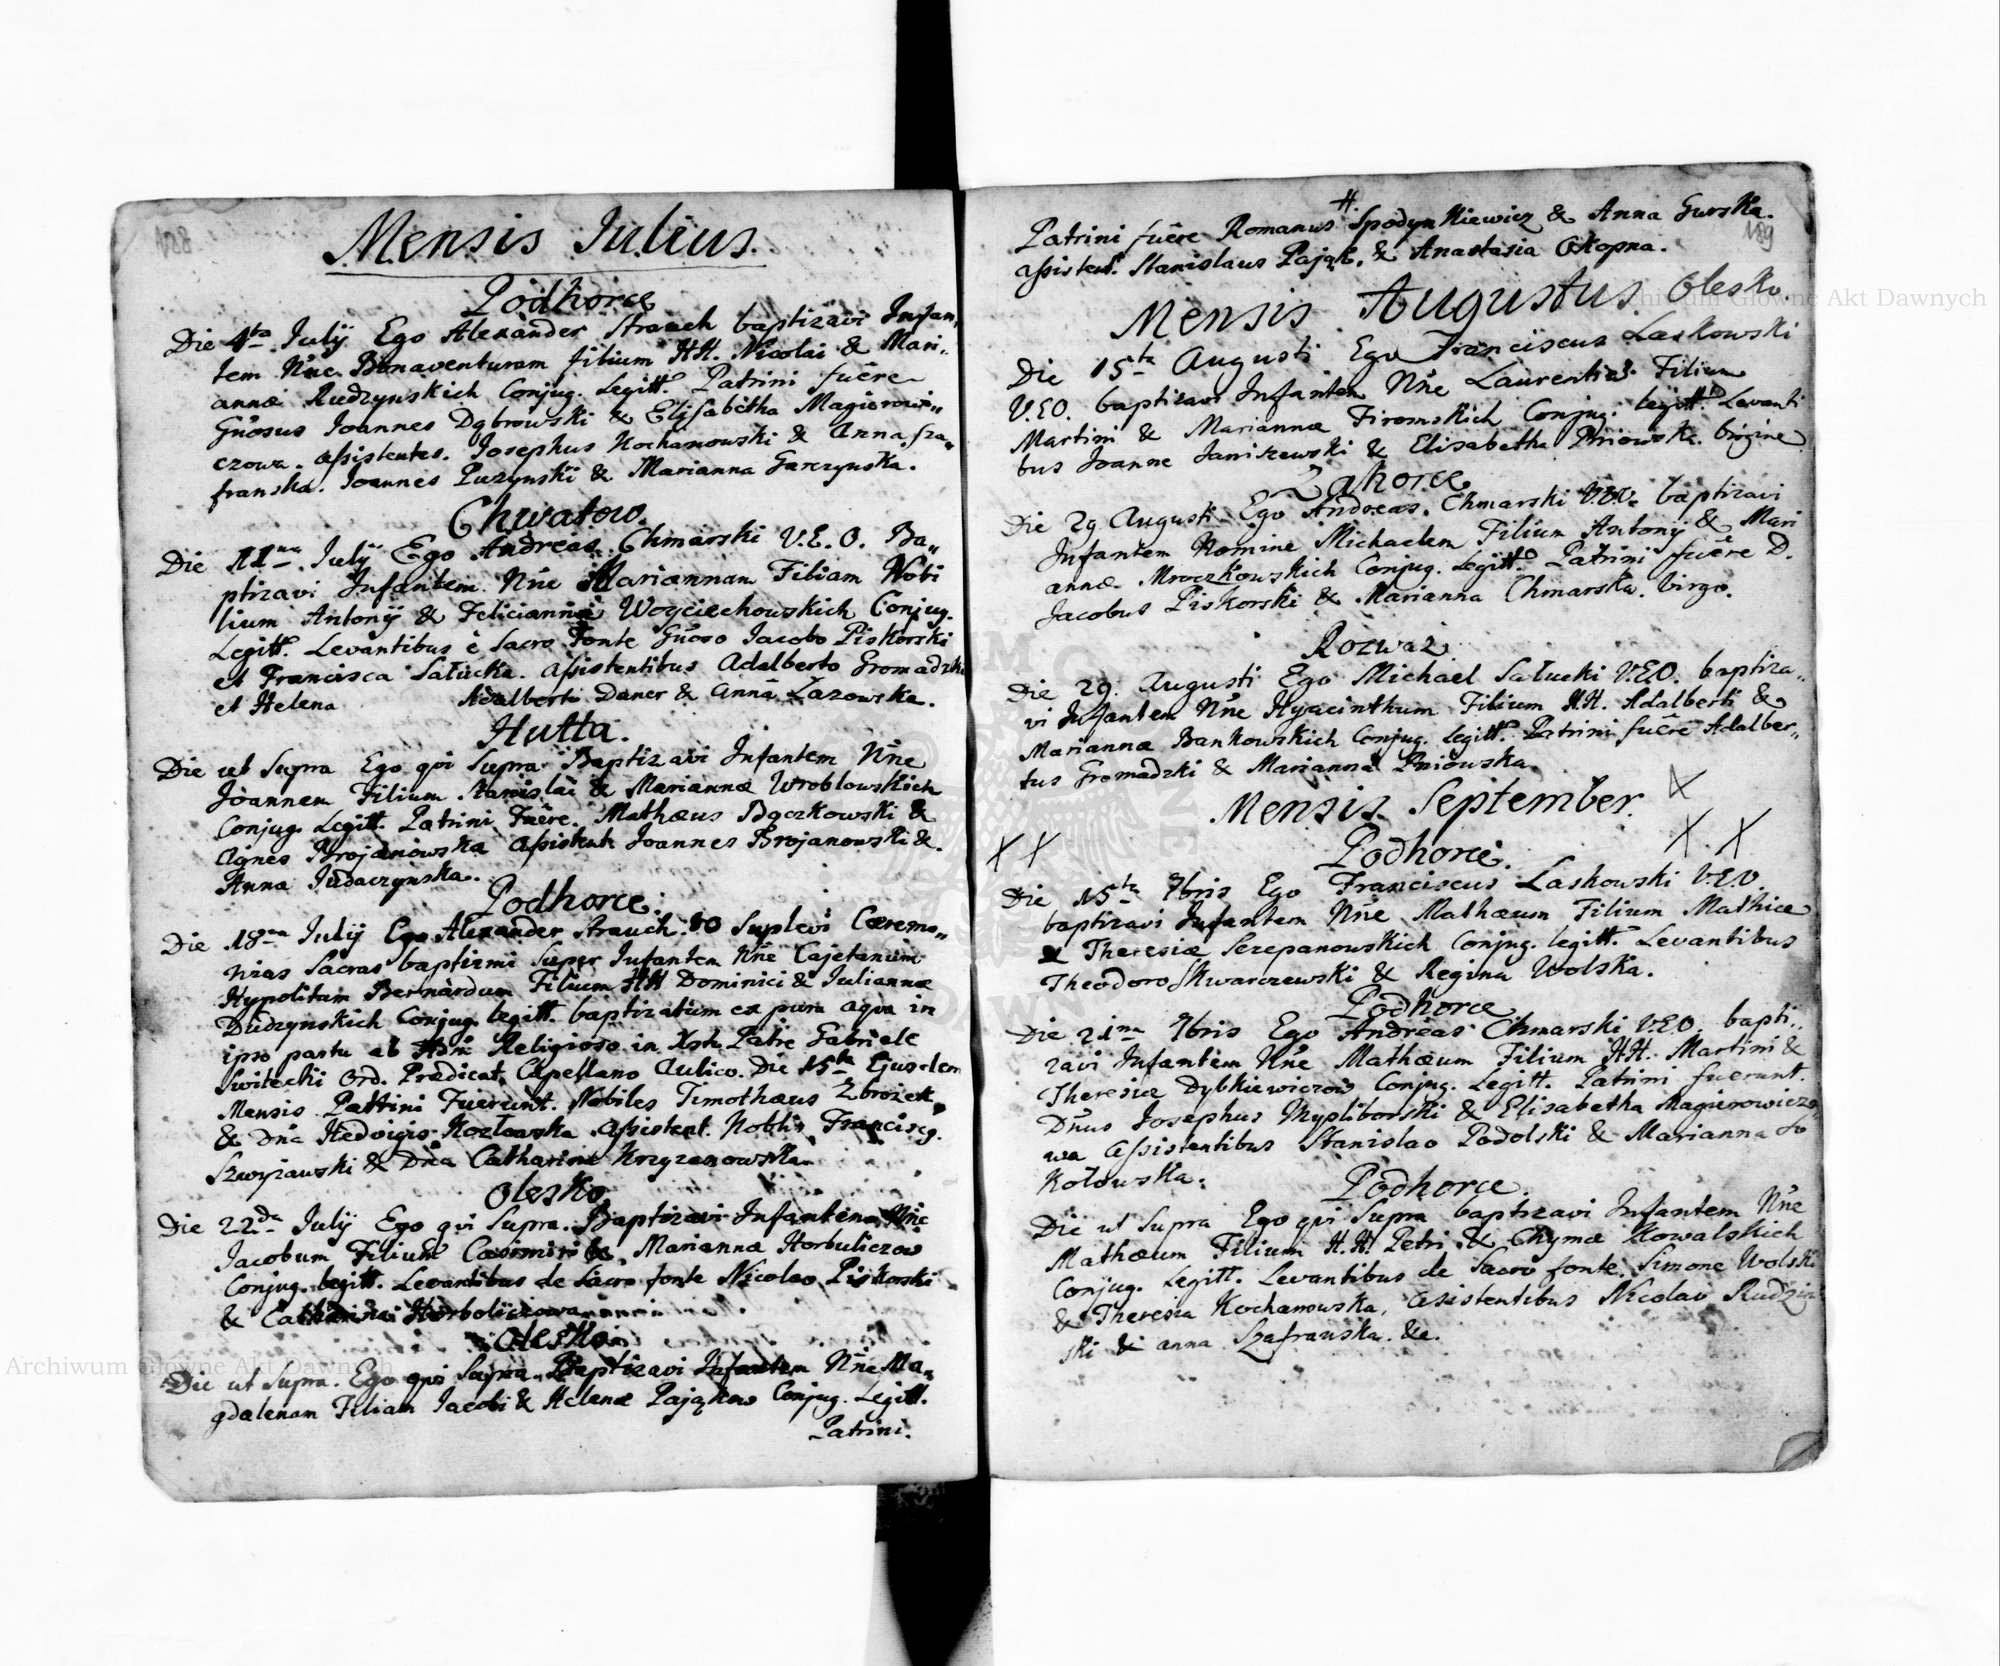 188
Mensis Julius.
Podhorce
Die 4ta July Ego Alexander Strauch baptizavi Infan,,
tem Nne Bonaventuram filium HH. Nicolai & Mari,,
annæ Rudzynskich Conjug. Legitt. Patrini fuêre
Gñosus Joannes Dąbrowski & Elisabetha Magierowi,,
czowa. assistentes. Josephus Kochanowski & Anna Sza,,
franska. Joannes Puzynski & Marianna Garczynska.
Chwatow.
Die 11ma July Ego Andreas Chmarski V.E.O. Ba,,
ptizavi Infantem Nne Mariannam Filiam Nobi
lium Antonij & Feliciannæ Woyciechowskich Conjug.
Legitt. Levantibus è Sacro Fonte Gñoso Jacobo Piskorski
et Francisca Sałucka. assistentibus Adalberto Gromadzki
et Helena Adalberti Daner & Anna Lazowska.
Hutta.
Die ut Supra Ego qvi Supra Baptizavi Infantem Nne
Joannem Filium Stanislai & Mariannæ Wroblowskich
Conjug. Legitt. Patrini Fuêre. Mathæus Bączkowski &
Agnes Brojanowska assistent. Joannes Brojanowski &.
Anna Judaczynska.
Podhorce.
Die 18va July Ego Alexander Strauch. VO Suplevi Cæremo,,
nias Sacras baptizmi Super Infantem Nne Cajetanum
Hypolitum Bernardum Filium HH Dominici & Juliannæ
Dudzynskich Conjug. legitt. baptizatum ex pura aqva in
ipso partu ab Adm Religioso in Xsto Patre Gabriele
Switecki Ord. Prædicat. Capellano Aulico. Die 15ta Ejusdem
Mensis Pattini Fuerunt. Nobiles Timothæus Zbrożek,
& Dna Hedvigis Kozlowska assistent. Noblis Francisc9.
Szwyzawski & Dna Catharina Krzyzanowska
Olesko
Die 22da July Ego qvi Supra. Baptizavi Infantem Nne
Jacobum Filium Casimiri & Mariannæ Horbuliczow
Conjug. legitt. Levantibus de Sacro fonte Nicolao Piskorski
& Catharina Horboliczowa
Olesko
Die ut Supra. Ego qvi Supra Baptizavi Infantem Nne Ma,,
gdalenam Filiam Jacobi & Helenæ Pająkow Conjug. Legitt.
Patrini.
189
Patrini fuêre Romanus Spodynkiewicz & Anna Gurska.
assistent. Stanislaus Pająk, & Anastasia Okopna.
Mensis Augustus. Olesko
Die 15ta Augusti Ego Franciscus Laskowski
V.E.O. baptizavi Infantem Nne Laurentiũ Filium
Martini & Mariannæ Firomskich Conjug. legitt. Levanti
bus Joanne Janiszewski & Elisabetha Pniowska. Virgine
Zahorce
Die 29. Augusti Ego Andreas. Chmarski V.E.O. baptizavi
Infantem Nomine Michaelem Filium Antonij & Mari
annæ Mroczkowskich Conjug. Legitt. Patrini fuêre D.
Jacobus Piskorski & Marianna Chmarska. Virgo.
Rozważ
Die 29. Augusti Ego Michael Sałucki V.E.O. baptiza,,
vi Infantem Nne Hyacinthum Filium HH. Adalberti &
Mariannæ Bankowskich Conjug. legitt. Patrini fuêre Adalber,,
tus Gromadzki & Marianna Pniowska
Mensis September. X
X X X X
Podhorce.
Die 15ta 7bris Ego Franciscus Laskowski V.E.O.
baptizavi Infantem Nne Mathæum Filium Mathiæ
& Theresiæ Serepanowskich Conjug. legitt. Levantibus
Theodoro Skwarczewski & Regina Wolska.
Podhorce
Die 21ma 7bris Ego Andreas Chmarski V.E.O. bapti,,
zavi Infantem Nne Mathæum Filium HH. Martini &
Theresiæ Dybkiewiczow Conjug. Legitt. Patrini fuerunt.
Dnus Josephus Mysliborski & Elisabetha Magierowiczo,,
wa assistentibus Stanislao Podolski & Marianna So
kołowska.
Podhorce.
Die ut Supra Ego qvi Supra baptizavi Infantem Nne
Mathæum Filium H.H. Petri & Chymæ Kowalskich
Conjug. Legitt. Levantibus de Sacro fonte Simone Wolski
& Theresia Kochanowska, assistentibus Nicolao Rudzin
ski & anna Szafranska. &c.
Archiwum Główne Akt Dawnych
Archiwum Główne Akt Dawnych